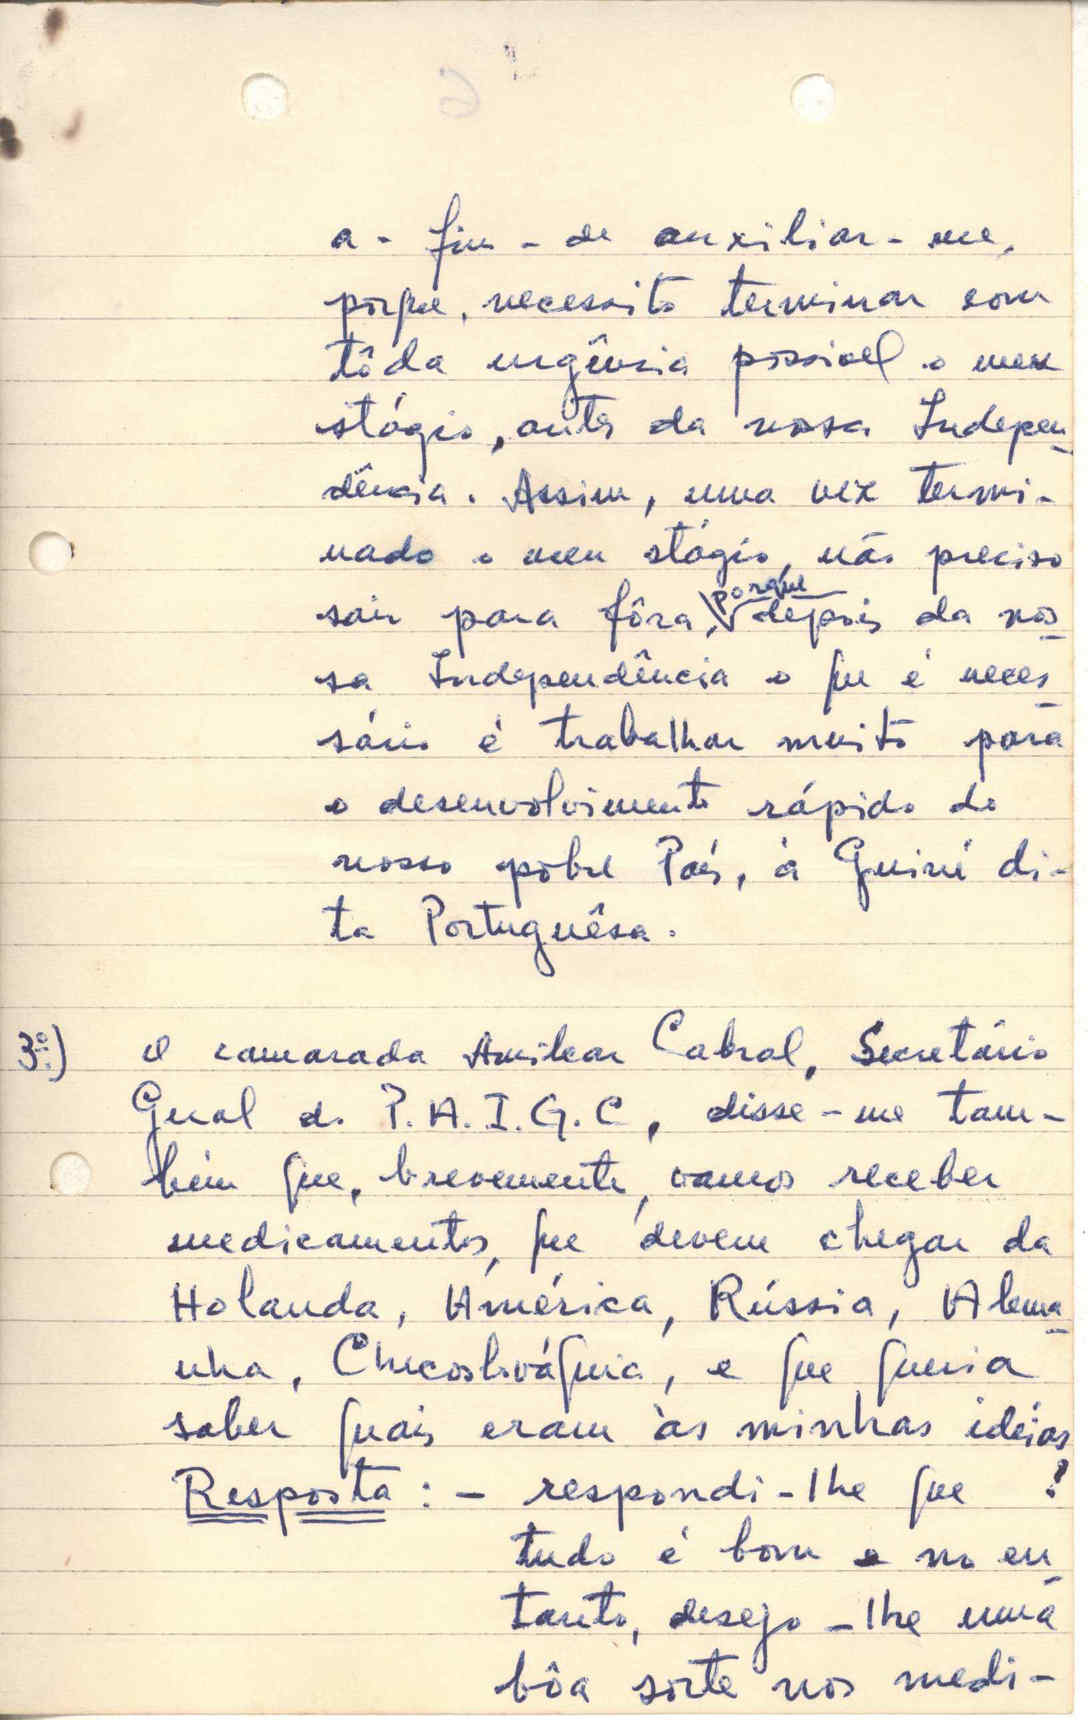 a-fim-de auxiliar-me,
porque, necessito terminar com
tôda urgência possivel o meu
stágio, antes da nossa Indepen-
dência. Assim, uma vez termi-
nado o meu stágio, não preciso
sair para fôra, porque depois da nos-
sa Independência o que é neces-
sário é trabalhar muito para
o desenvolvimento rápido do
nosso pobre País, à Guiné di-
ta Portuguêsa.
3º) O camarada Amilcar Cabral, Secretário
Geral do P.A.I.G.C, disse-me tam-
bém que, brevemente, vamos receber
medicamentos, que devem chegar da
Holanda, América, Rússia, Alema-
nha, Checoslováquia, e que queria
saber quais eram às minhas idéias?
Resposta: - respondi-lhe que
tudo é bom e no en-
tanto, desejo-lhe uma
bôa sorte nos medi-